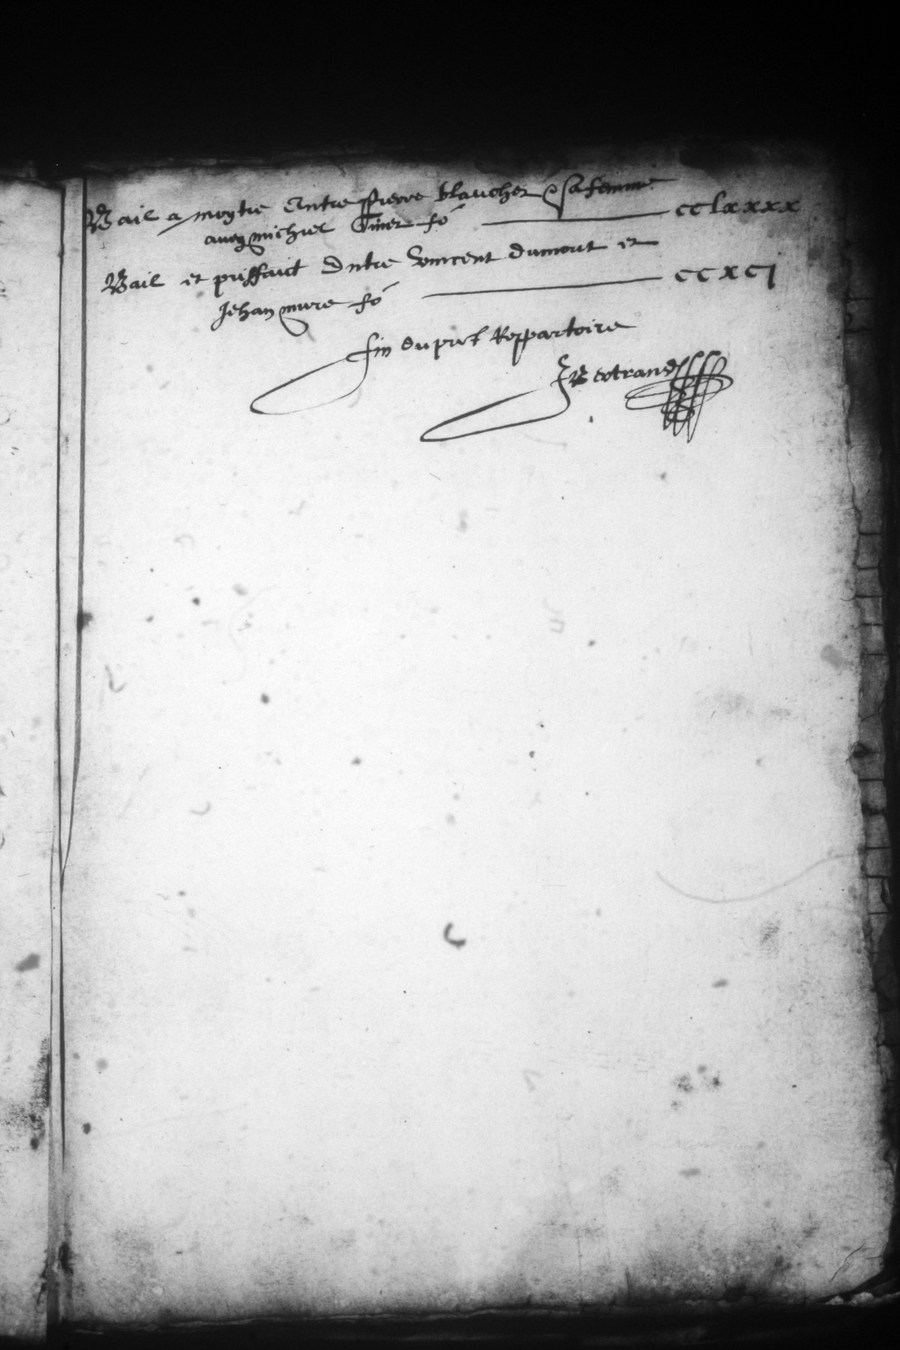 Bail a moytie Entre pierre blancher & sa femme
avecq michiel fo cclxxxx
Bail et prisfaict Entre vincent dumont et
Jehan mure fo ccxcj
fin du pnt Reppartoire
JBertrand